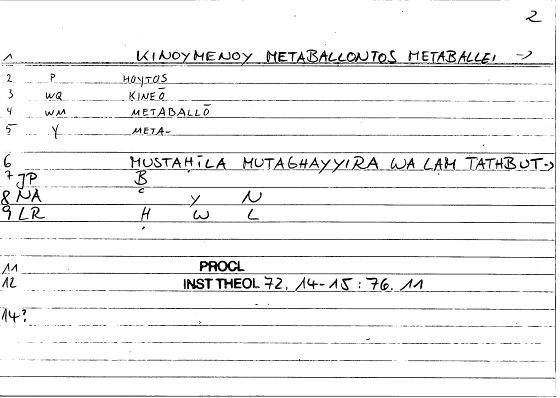 2
1 KINOYMENOY METABALLONTOS METABALLEI →
2 P HOYTOS
3 WQ KINEŌ
4 WM METABALLŌ
5 Y META-
6 MUSTAḤĪLA MUTAGHAYYIRA WA LAM TATHBUT→
7 JP B
8 NA C Y N
9 LR H W L
11 PROCL
12 INST THEOL 72, 14-15 : 76. 11
14?